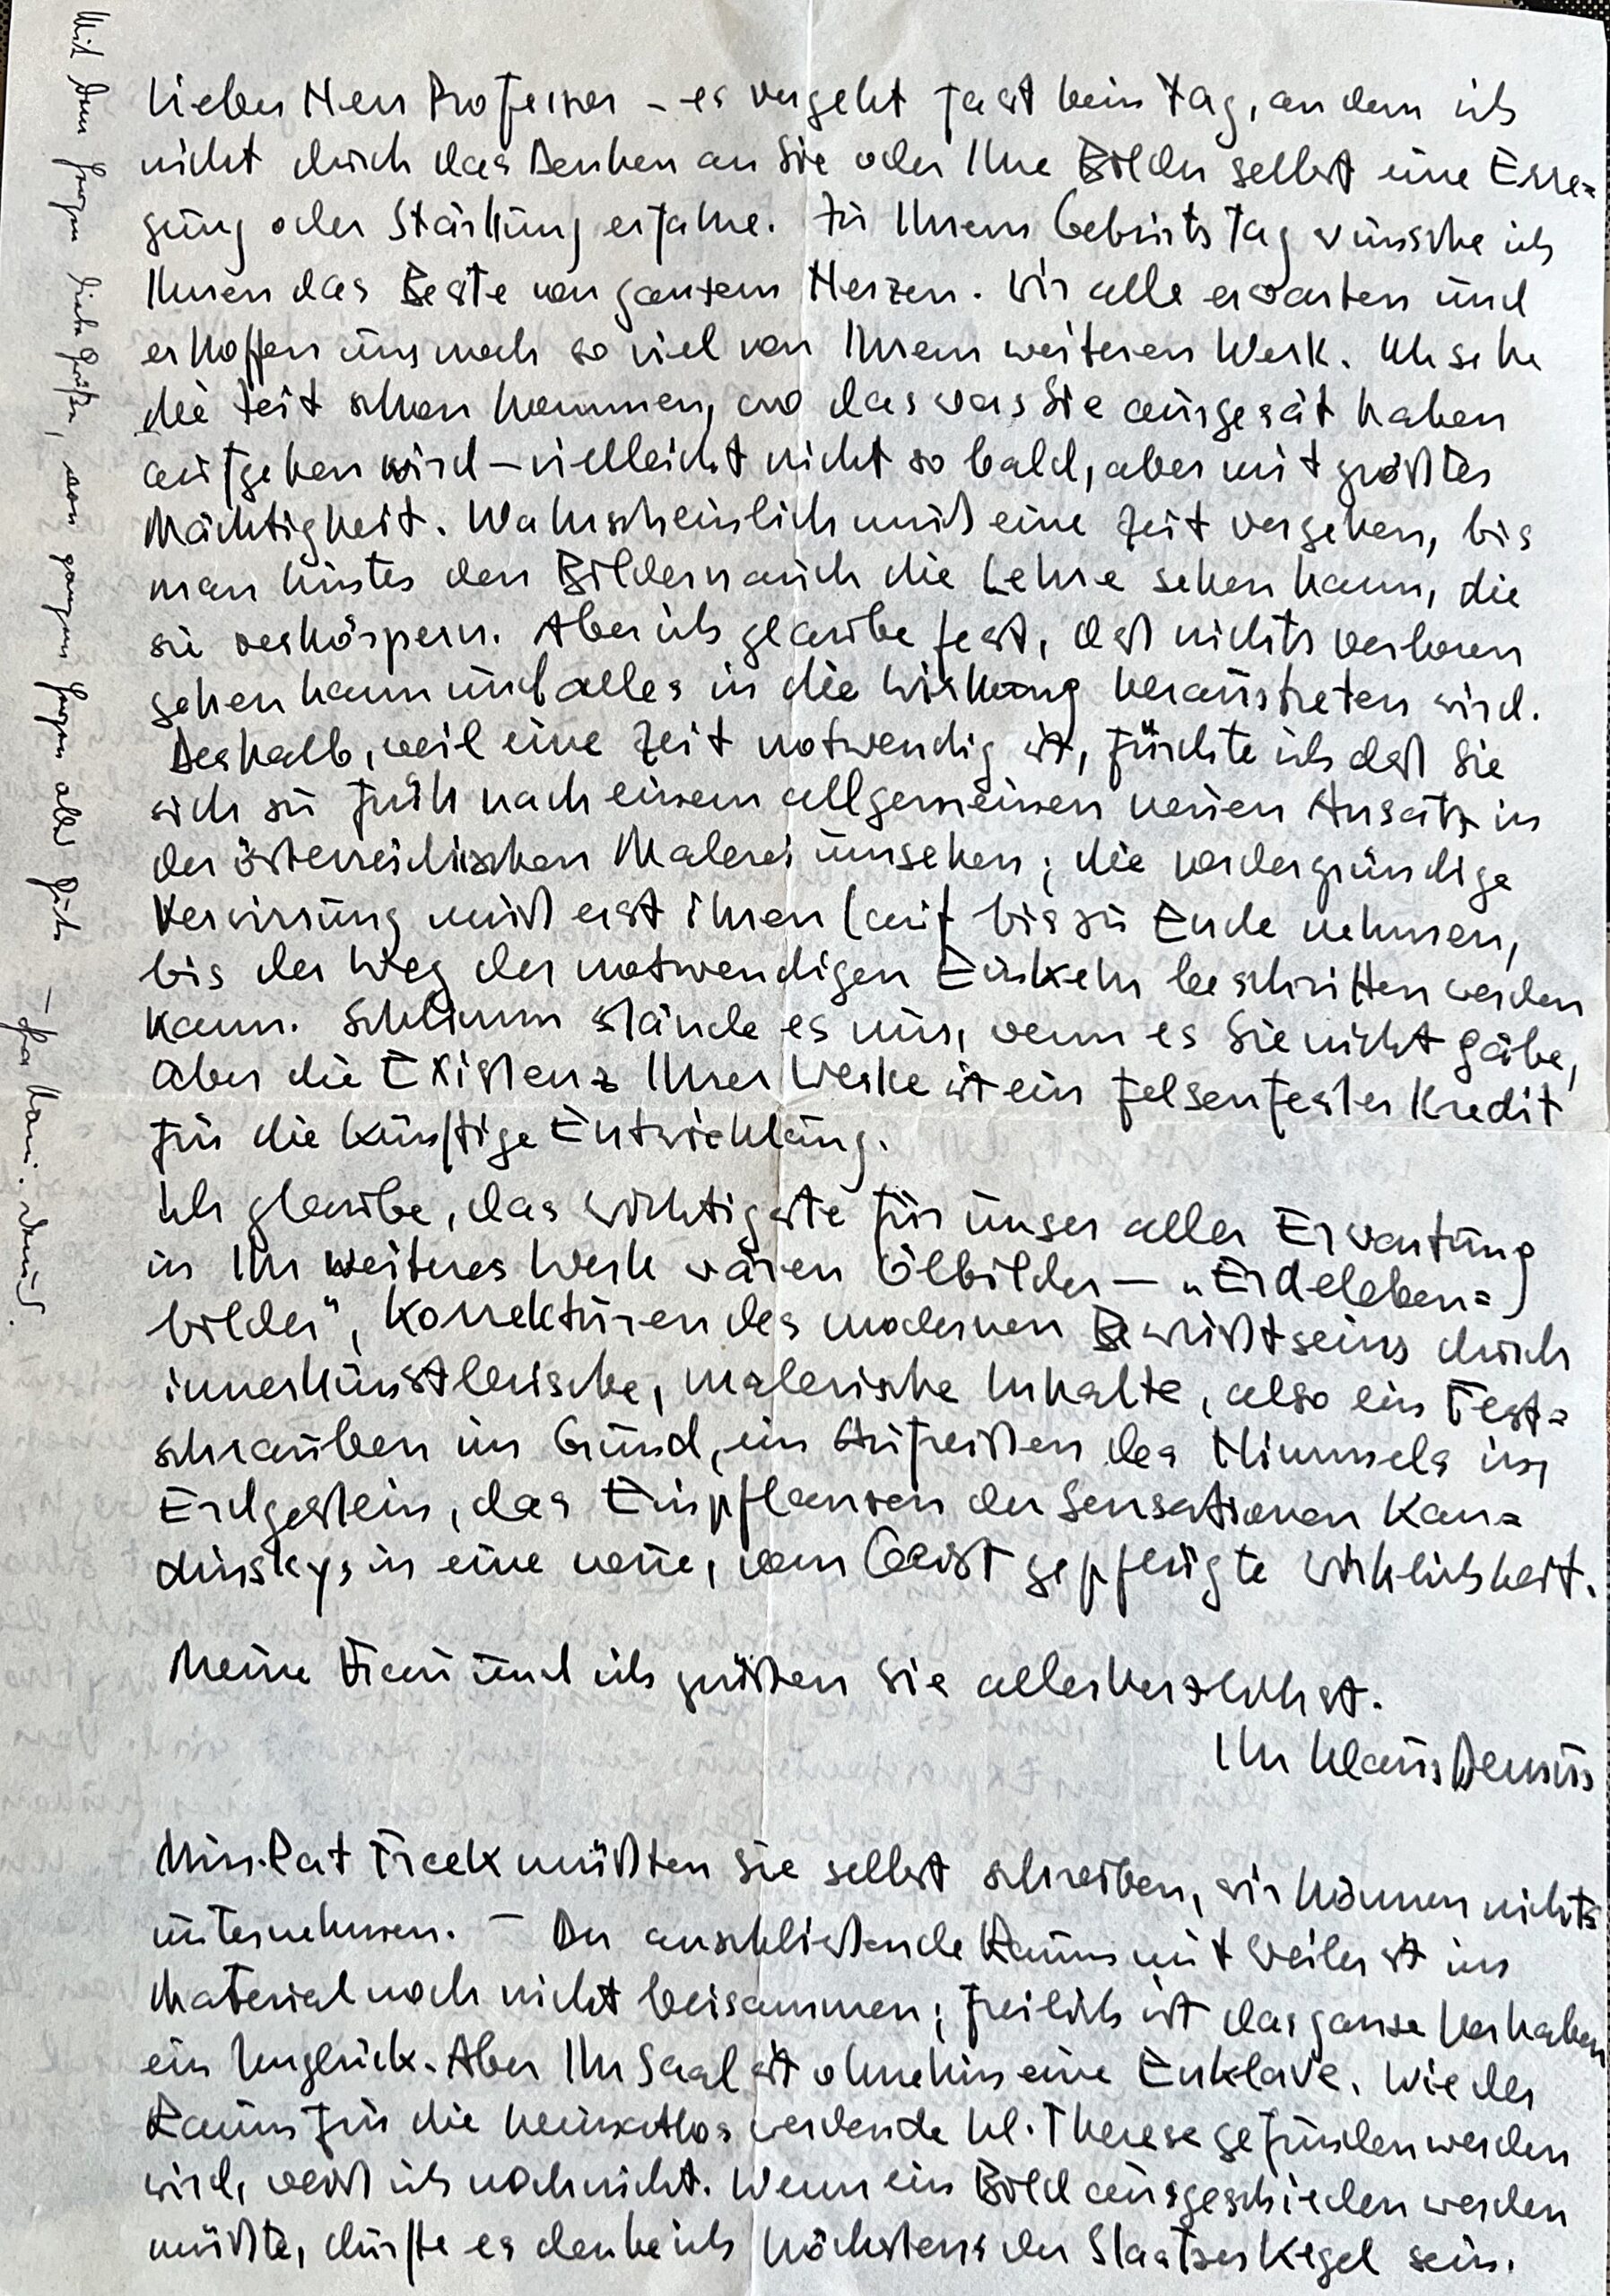 Lieber Herr Professor – es vergeht fast kein Tag, an dem ich
nicht durch das Denken an Sie oder Ihre Bilder selbst eine Erre=
gung oder Stärkung erfahre. Zu Ihrem Geburtstag wünsche ich
Ihnen das Beste von ganzem Herzen. Wir alle erwarten und
erhoffen uns noch so viel von Ihrem weiteren Werk. Ich sehe
die Zeit schon kommen, wo das was Sie ausgesät haben
aufgehen wird – vielleicht nicht so bald, aber mit größter
Mächtigkeit. Wahrscheinlich muß eine Zeit vergehen, bis
man hinter den Bildern auch die Lehre sehen kann, die
sie verkörpern. Aber ich glaube fest, daß nichts verloren
gehen kann und alles in die Wirkung heraustreten wird.
Deshalb, weil eine Zeit notwendig ist, fürchte ich daß Sie
sich zu früh nach einem allgemeinen neuen Ansatz in
der österreichischen Malerei umsehen; die vordergründige
Verwirrung muß erst ihren Lauf bis zu Ende nehmen,
bis der Weg der notwendigen Einkehr beschritten werden
kann. Schlimm stände es nur, wenn es Sie nicht gäbe,
aber die Existenz Ihrer Werke ist ein felsenfester Kredit
für die künftige Entwicklung.
Ich glaube, das wichtigste für unser aller Erwartung
in Ihr weiteres Werk wären Ölbilder – „Erdeleben=
bilder", Korrekturen des modernen Bewußtseins durch
innerkünstlerische, malerische Inhalte, also ein Fest=
schrauben im Grund, ein Aufreißen des Himmels im
Erdgestein, das Einpflanzen der Sensationen Kan=
dinskys in eine neue, vom Geist gepflügte Wirklichkeit.
Meine Frau und ich grüßen Sie allerherzlichst.
Ihr Klaus Demus
Min. Rat müßten Sie selbst schreiben, wir können nichts
unternehmen. – Der anschließende Raum mit Weiler ist im
Material noch nicht beisammen; freilich ist das ganze Vorhaben
ein Unglück. Aber Ihr Saal ist ohnehin eine Enklave. Wie der
Raum für die heimatlos werdende hl. Therese gefunden werden
wird, weiß ich noch nicht. Wenn ein Bild ausgeschieden werden
müßte, dürfte es denke ich höchstens der Staatzer Kegel sein.
Mit den liebe Grüße, von ganzem Herzen alles Gute –